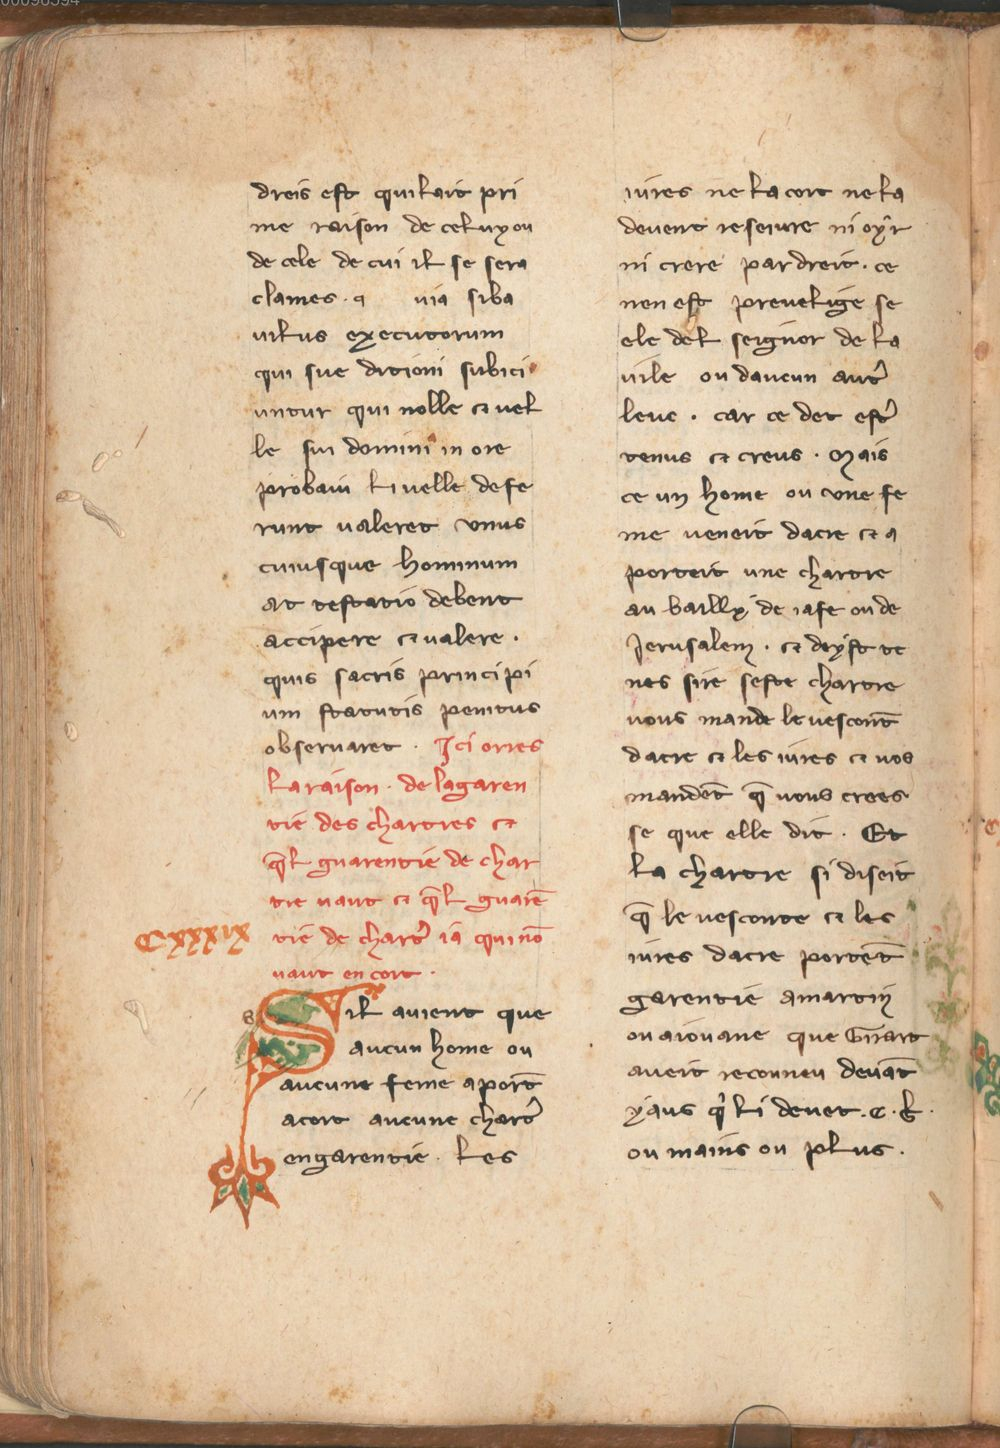 dreis est quil ait pri
me raison de celuy ou
de cele de cui il se sera
clames. q uia siba
uilus execucorum
qui sue ditioni subici
untur qui nolle et uel
le sui domini in ore
probaui ki uelle defe
runt ualeret unus
cuiusque hominum
at testatio debent
accipere et ualere.
quis sacris principi
um statutis penitus
obseruaret. Ici orres
la raison. de lagaren
tie des chartres et
q̄l guarentie de char
tre uaut et q̄l guarē
tie de chartᷣ ia qui nō
uaut en cort.
Sil auient que
aucun home ou
aucune feme aport̄
a cort aucune chartᷣ
en garentie. Les
iures ne la cort ne la
deuent reseiure ni oyr
ni crere par dreit. ce
nen est preuelige se
ele del seignor de la
uile ou daucun autᷣ
leue. car ce det estᷣ
tenus et creus. Mais
ce un home ou une fe
me ueneit dacre et a
porteit une chartre
au bailly de iafe ou de
Jerusalem. et dyst te
nes sire seste chartre
uous mande le uescont̄
dacre et les iures et uos
mandēt q̄ uous crees
se que elle dit. Et
la chartre si diseit
q̄ le uesconte et les
iures dacre portēt
garentie amartin
ou aiouane que Girart
aueit reconneu deuāt
yaus q̓ li deuet. c. b.
ou mains ou plus.